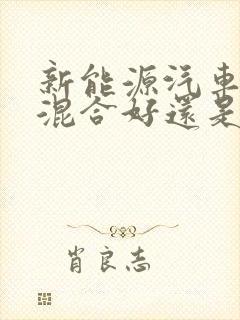 新能源汽車
混合好還是
肖良志